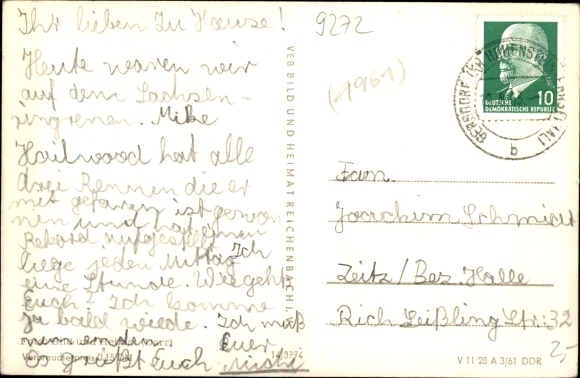 Ihr lieben Zu Hause!
Heute waren wir
auf dem Sachsen-
ringrenen. Mike
Hailwood hat alle
drei Rennen die er
mit gefaren ist gewon
nen und hat einen
Rekord aufgestellt. Ich
liege jeden Mittag
eine Stunde. Wie geht
Euch? Ich komme
ja bald wiede. Ich muß
Es grüßt Euch Euer
Verbraucherpreis 0,15 DM
14/3774
VEB BILD UND HEIMAT REICHENBACH I. V.
9272
(1961)
DEUTSCHE 10
DEMOKRATISCHE REPUBLIK
GERSDORF HOHENSTEIN-ERNSTTHAL
b
Fam.
Joachim Schmidt
Zeitz/Bez. Halle
Rich Leißling Str: 32
2,-
V 11 28 A 3/61 DDR